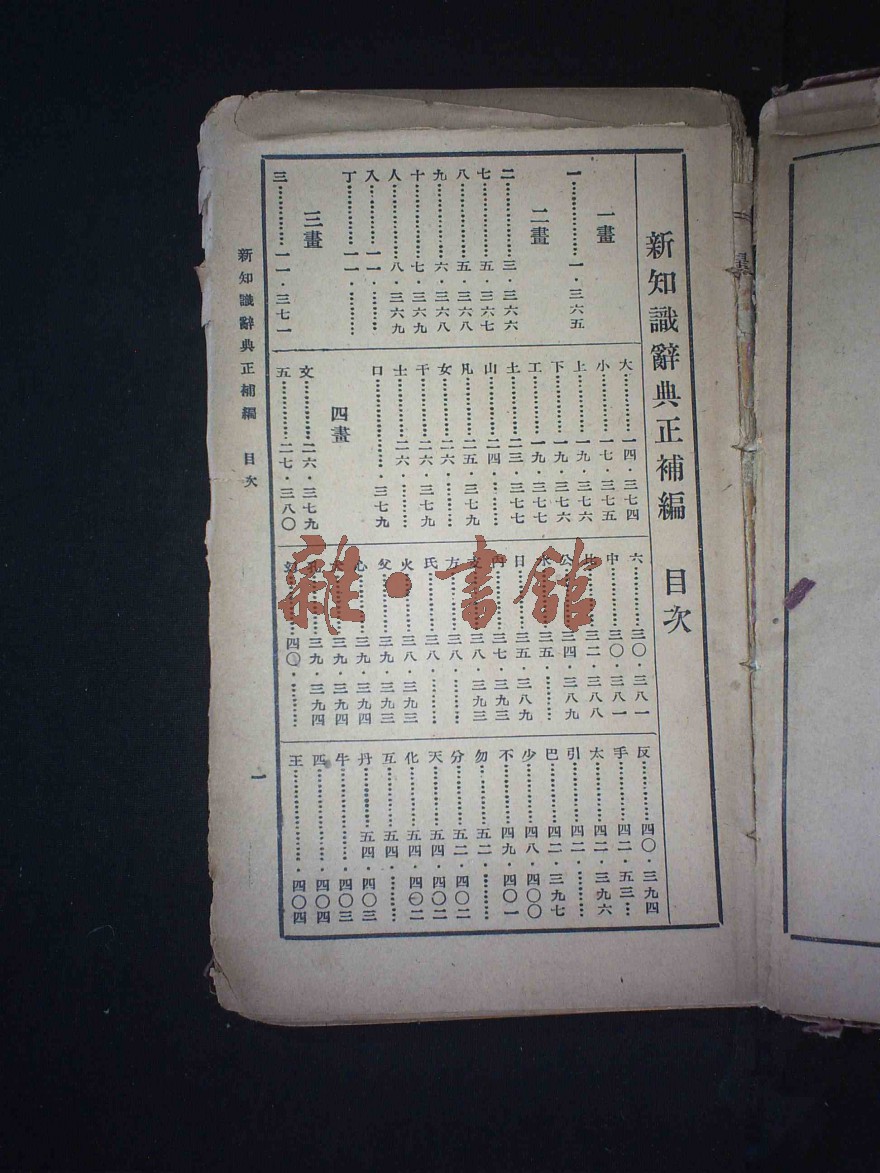 新知識辭典正補編 目次
一畫
一………………一·三六五
二畫
二………………三·三六六
七………………五·三六七
八………………五·三六八
九………………六·三六八
十………………七·三六九
人………………八·三六九
入………………一一·………
丁………………一一·………
三畫
三………………一一·三七一
大………………一四·三七四
小………………一七·三七五
上………………一九·三七六
下………………一九·三七六
工………………一九·三七七
土………………二三·三七七
山………………二四·………
凡………………二五·三七九
女………………二六·………
干………………二六·三七九
士………………二六·………
口………………·三七九
四畫
文………………二六·三七九
五………………二七·三八〇
六………………三〇·三八一
中………………三〇·三八一
………………三二·三八八
公………………三四·三八九
水………………三五·………
日………………三五·三八九
………………三七·三九三
支………………三八·三九三
方………………三八·………
氏………………三八·………
火………………三八·三九三
父………………三九·三九三
心………………三九·三九四
………………三九·三九四
………………三九·三九四
幻………………四〇·………
反………………四〇·三九四
手………………四二·五三…
太………………四二·三九六
引………………四二·………
巴………………四二·三九七
少………………四八·四〇〇
不………………四九·四〇一
勿………………五二·………
分………………五二·四〇二
天………………五四·四〇二
化………………五四·四〇二
互………………五四·………
丹………………五四·四〇三
牛………………·四〇三
匹………………·四〇四
王………………·四〇四
新知識辭典正補編 目次
一
雜·書館